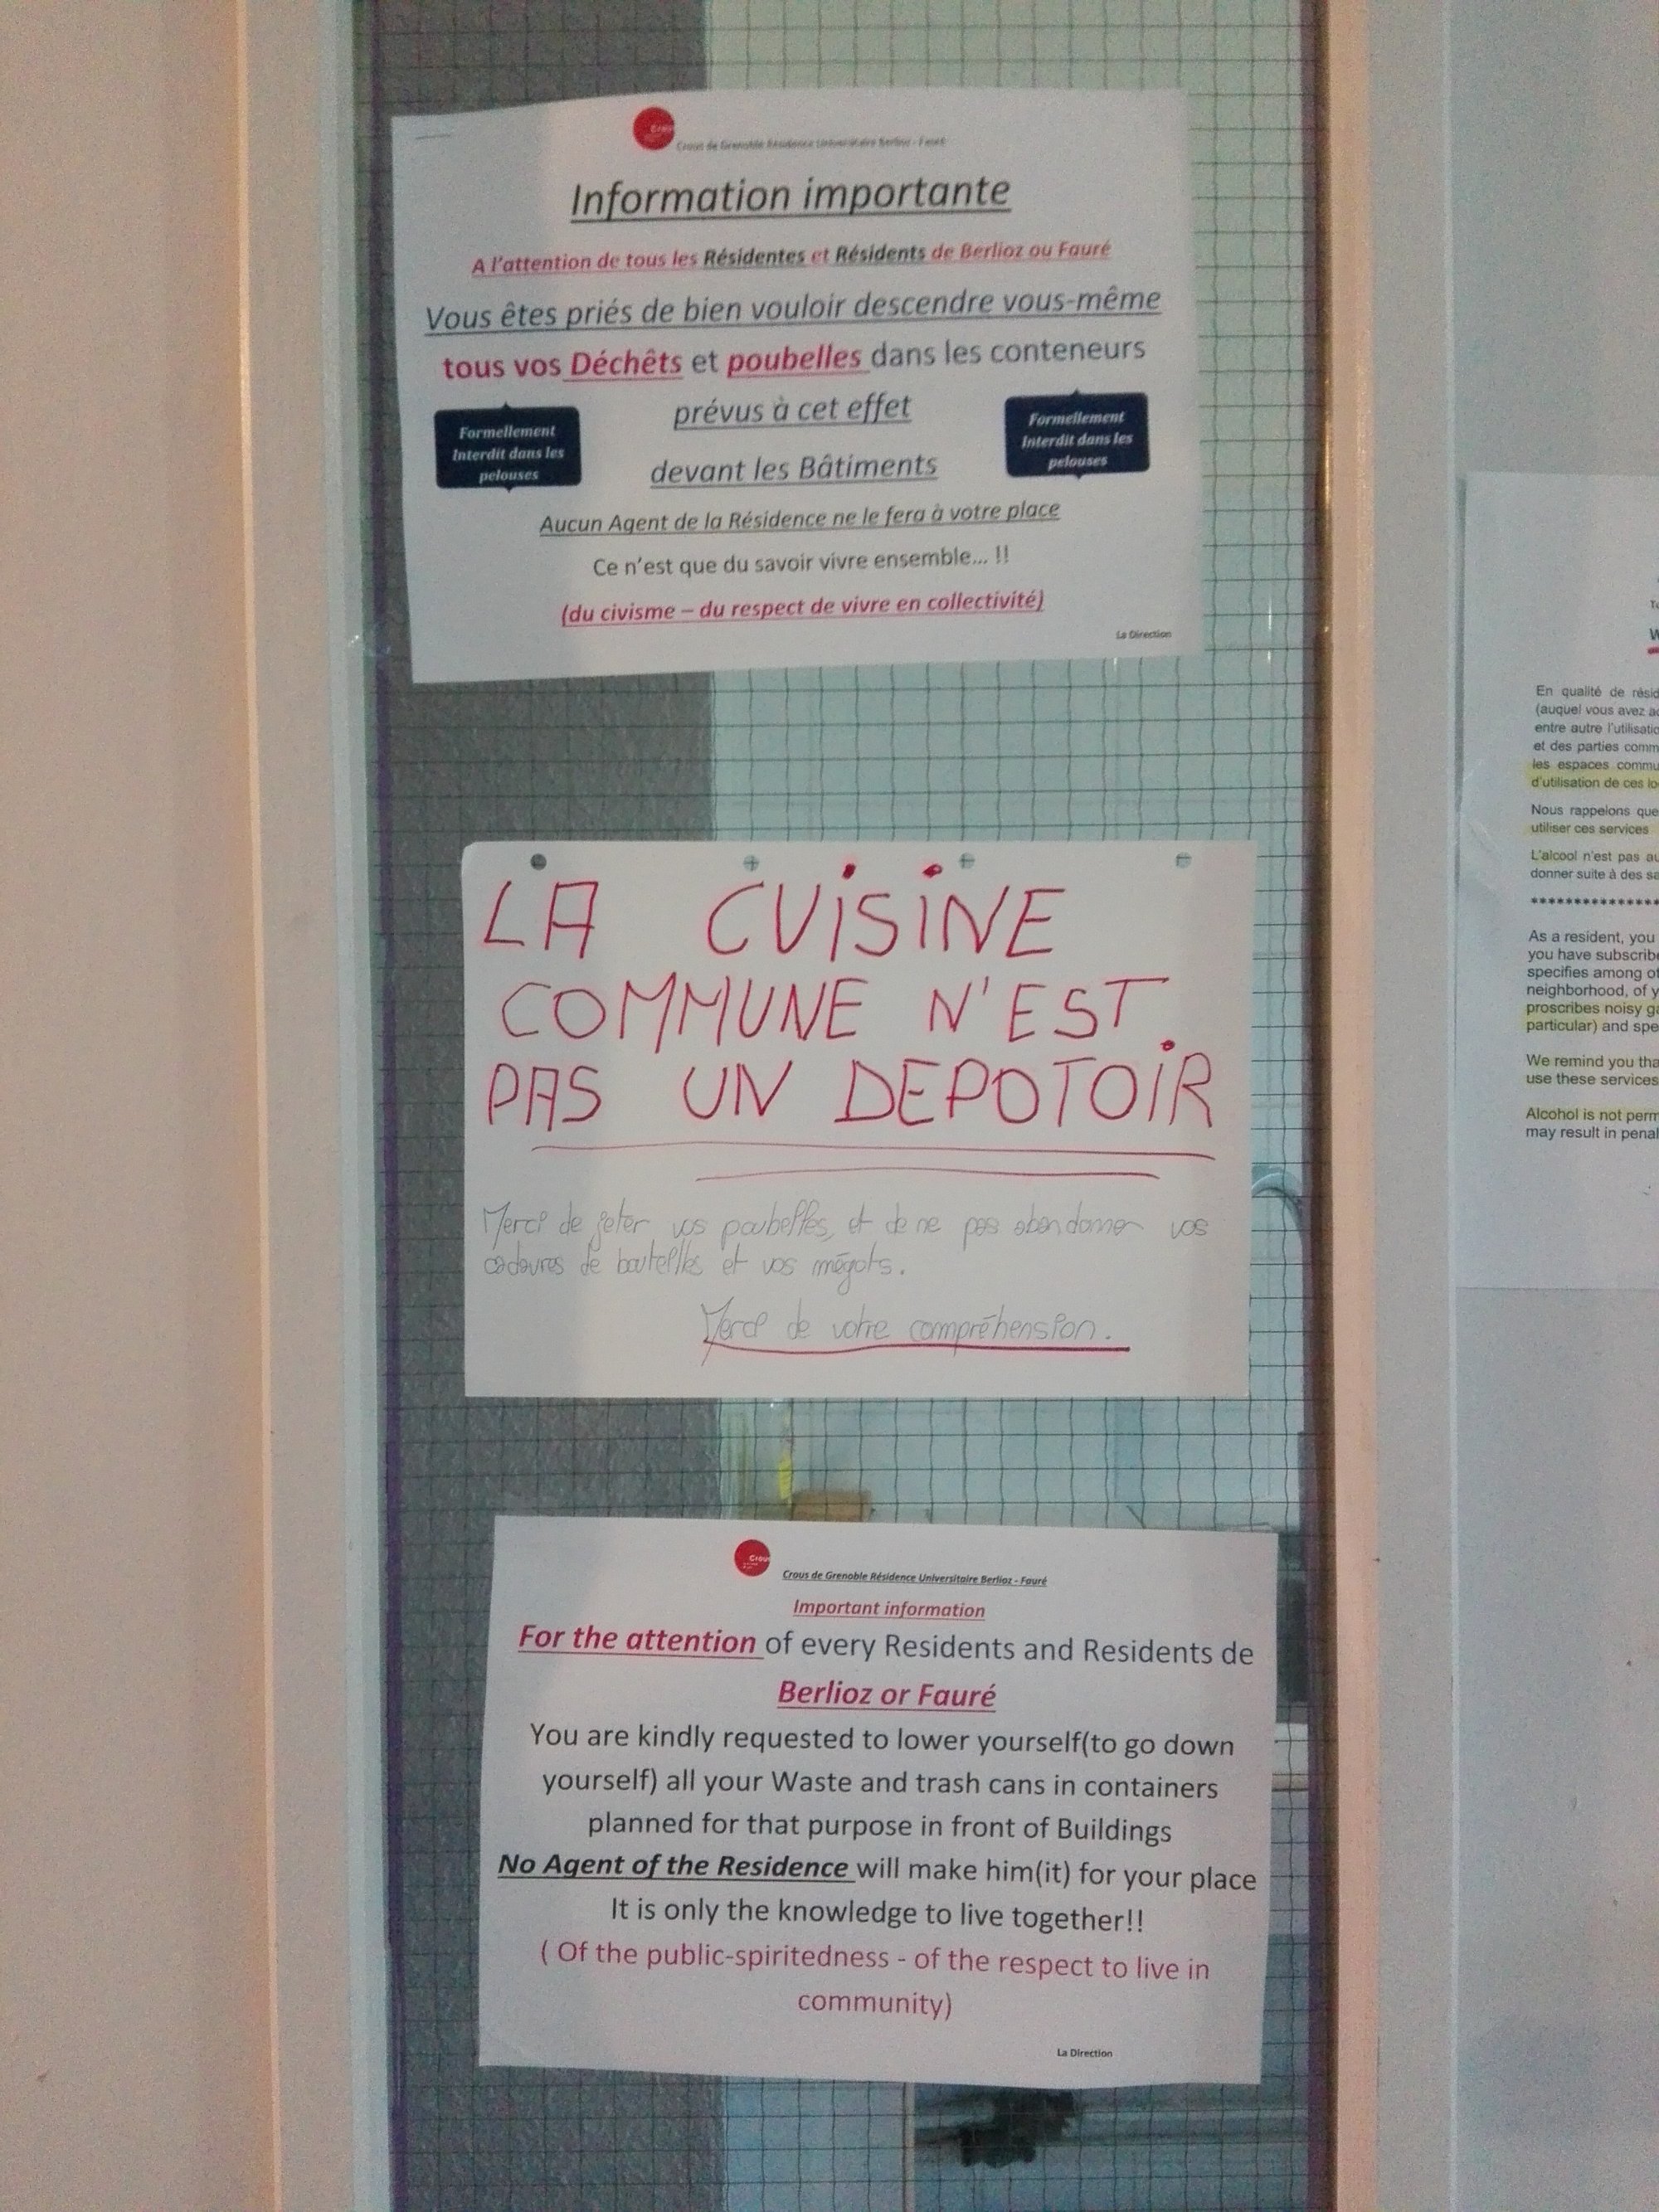 Crous
Crous de Grenoble Résidence Universitaire Berlioz - Fauré
Information importante
A l'attention de tous les Résidentes et Résidents de Berlioz ou Fauré
Vous êtes priés de bien vouloir descendre vous-même
tous vos Déchêts et poubelles dans les conteneurs
prévus à cet effet
devant les Bâtiments
Formellement
Interdit dans les
pelouses
Formellement
Interdit dans les
pelouses
Aucun Agent de la Résidence ne le fera à votre place
Ce n'est que du savoir vivre ensemble... !!
(du civisme – du respect de vivre en collectivité)
La Direction
LA CUISINE
COMMUNE N'EST
PAS UN DEPOTOIR
Merci de jeter vos poubelles, et de ne pas abandonner vos
cadavres de bouteilles et vos mégots.
Merci de votre compréhension.
Crous
Crous de Grenoble Résidence Universitaire Berlioz - Fauré
Important information
For the attention of every Residents and Residents de
Berlioz or Fauré
You are kindly requested to lower yourself(to go down
yourself) all your Waste and trash cans in containers
planned for that purpose in front of Buildings
No Agent of the Residence will make him(it) for your place
It is only the knowledge to live together!!
( Of the public-spiritedness - of the respect to live in
community)
La Direction
En qualité de
(auquel vous avez
entre autre
et des parties
les espaces
d'utilisation de ces
Nous rappelons que
utiliser ces services
L'alcool n'est pas
donner suite à des
***************
As a resident, you
you have
specifies among
neighborhood, of
proscribes noisy
particular) and
We remind you
use these services
Alcohol is not
may result in